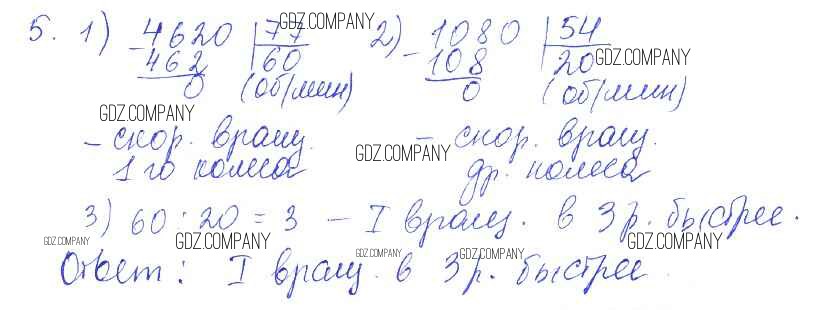 5. 1) 4620 | 77 2) 1080 | 54
- 462 60 - 108 20
0 (об/мин) 0 (об/мин)
- скор. вращ. - скор. вращ.
1 го колеса др. колеса
3) 60 : 20 = 3 - I вращ. в 3 р. быстрее.
Ответ: I вращ. в 3 р. быстрее.
GDZ.COMPANY
GDZ.COMPANY
GDZ.COMPANY
GDZ.COMPANY
GDZ.COMPANY
GDZ.COMPANY
GDZ.COMPANY
GDZ.COMPANY
GDZ.COMPANY